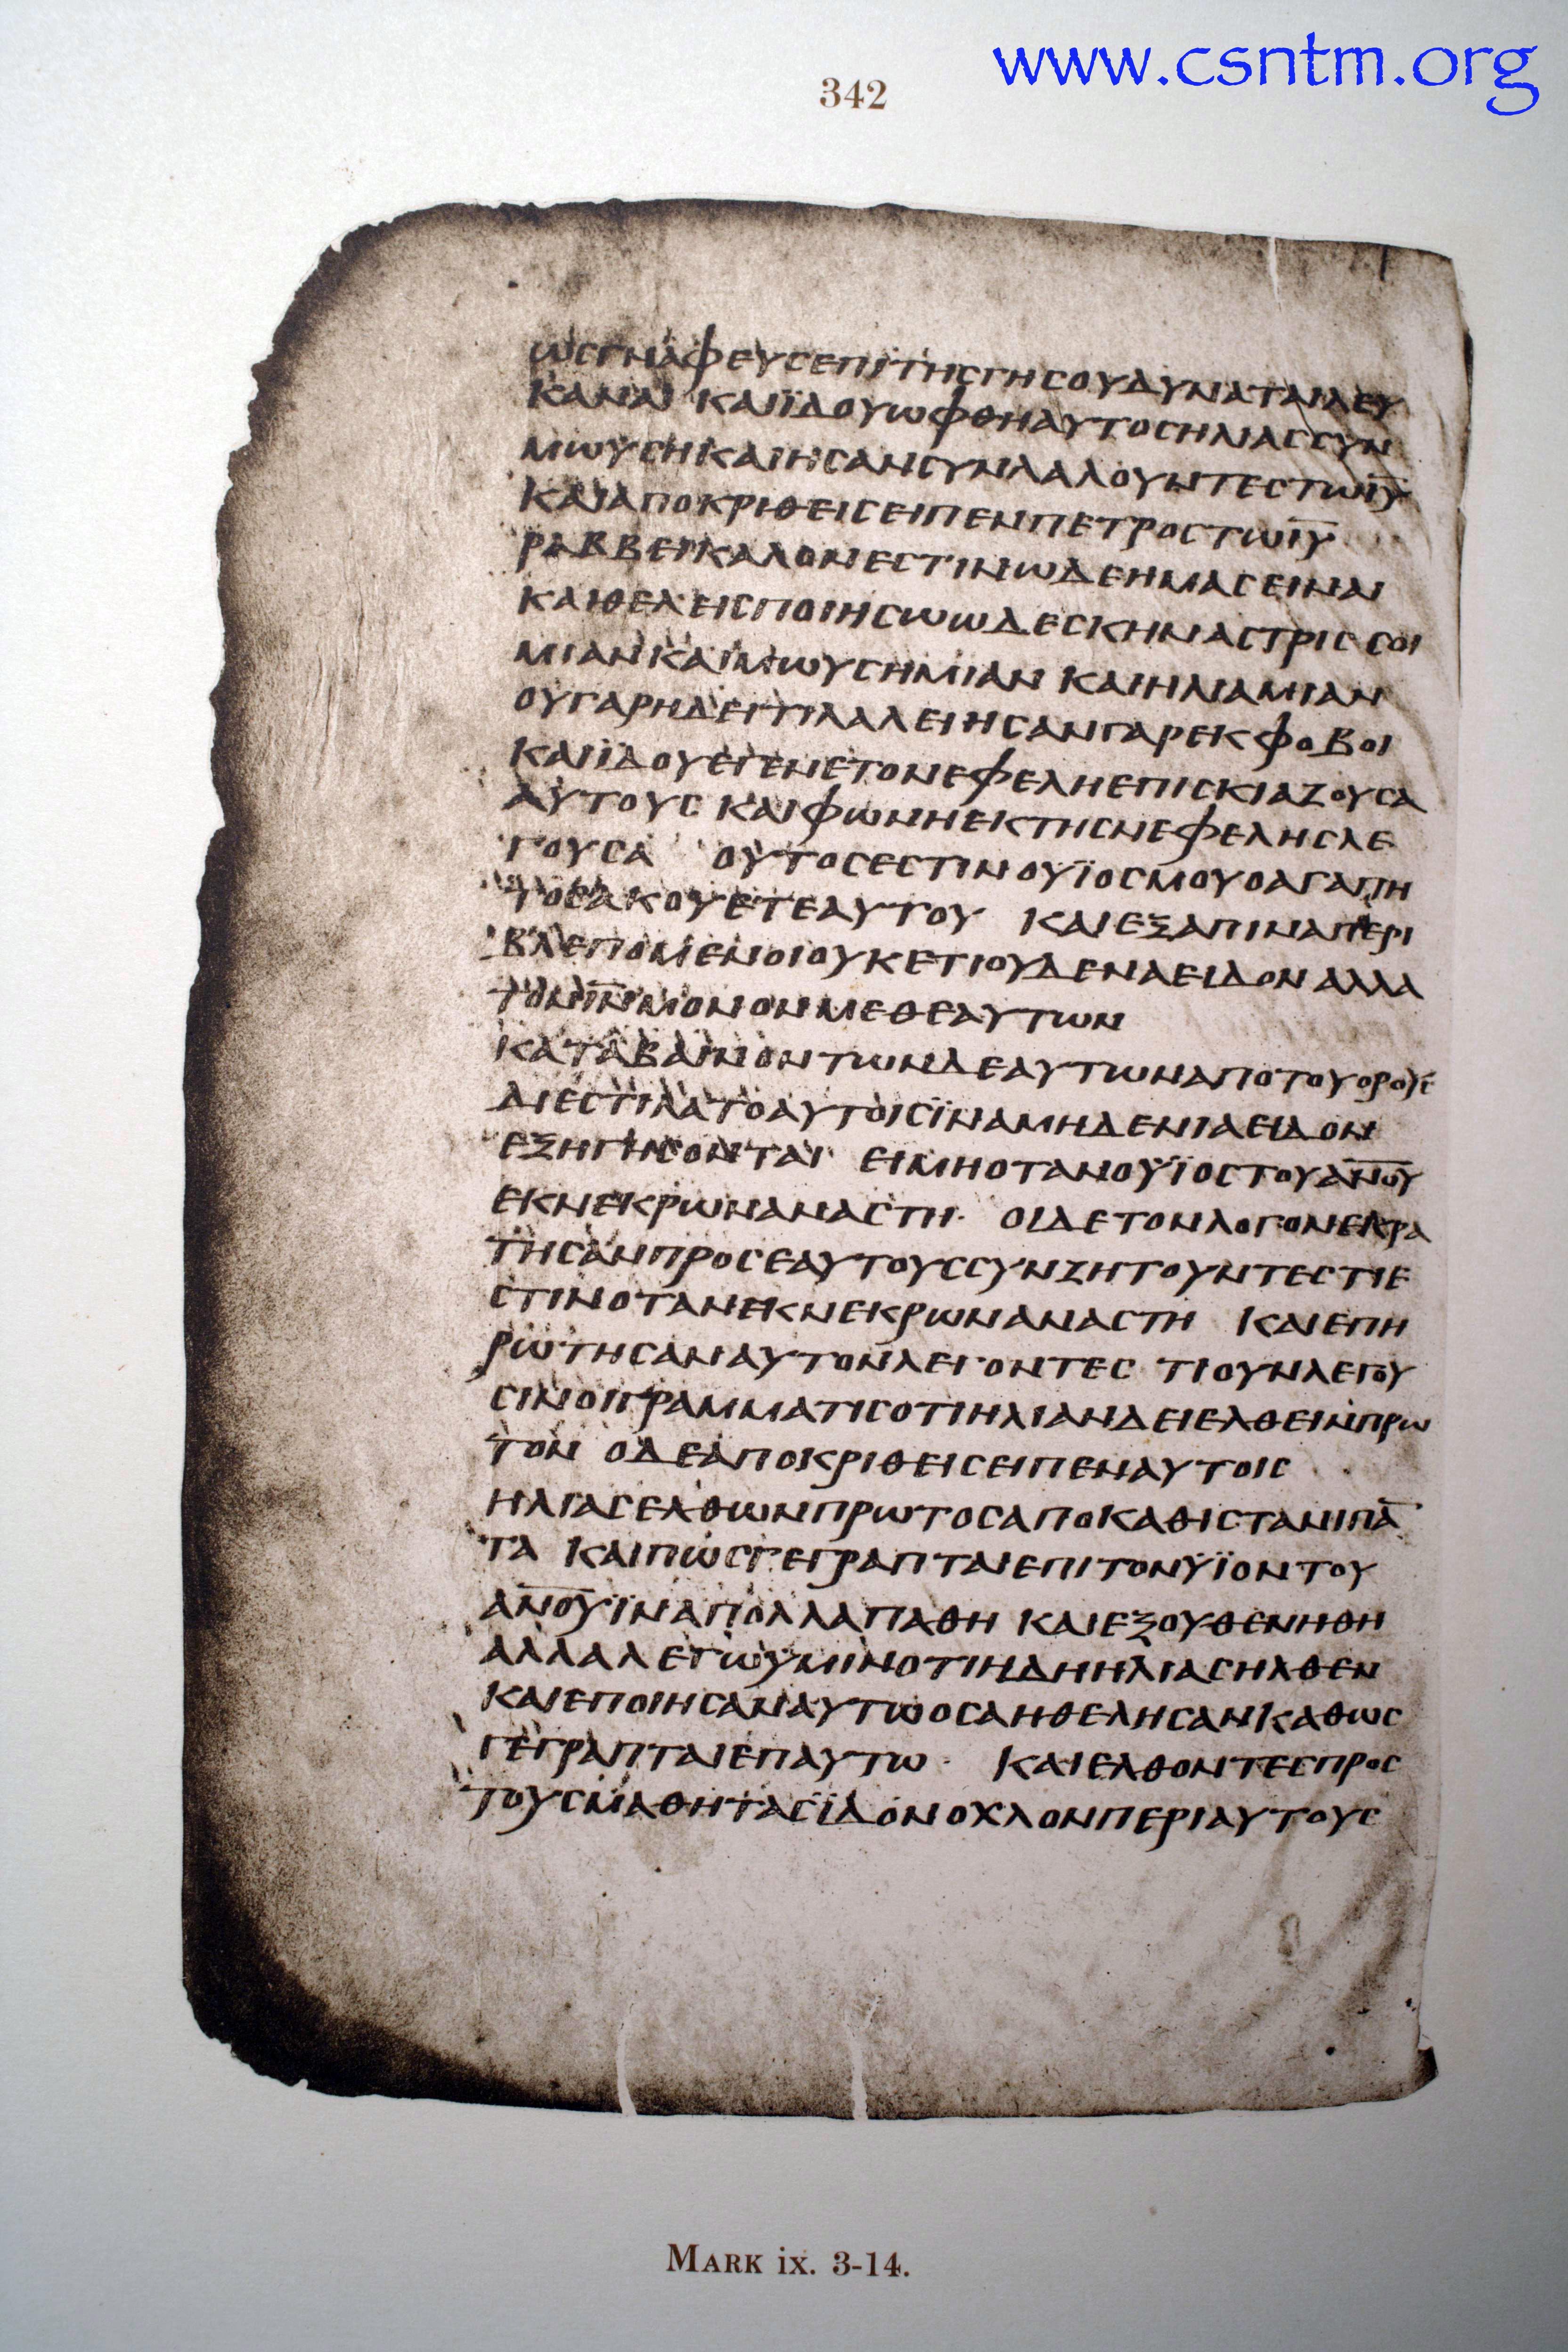 342
www.csntm.org
ωςγναφευςεπιτηςγηςουδυναταιλευ
καναι καιϊδουωφθηαυτοςηλιαςςυν
μωυςηκαιηςανςυνλαλουντεςτωι̅υ̅
καιαποκριθειςειπενπετροςτωι̅υ̅
ραββεικαλονεςτινωδεημαςειναι
καιθελειςποιηςωωδεςκηναςτρις ςοι
μιανκαιμωυςημιαν καιηλιαμιαν
ουγαρηδειτιλαλειηςανγαρεκφοβοι
καιϊδουεγενετονεφεληεπιςκιαζουςα
αυτους καιφωνηεκτηςνεφεληςλε
γουςα ουτοςεςτινουϊοςμουοαγαπη
τοςακουετεαυτου καιεξαπιναπερι
βλεπομενοιουκετιουδεναειδοναλλα
τονι̅ν̅μονονμεθεαυτων
καταβαινοντωνδεαυτωναποτουορους
διεςτιλατοαυτοιςϊναμηδενιαειδον
εξηγηςονται ειμηοτανουϊοςτουα̅ν̅ο̅υ̅
εκνεκρωναναςτη· οιδετονλογονεκρα
τηςανπροςεαυτουςςυνζητουντεςτιε
ςτινοτανεκνεκρωναναςτη καιεπη
ρωτηςαναυτονλεγοντες τιουνλεγου
ςινοιγραμματιςοτιηλιανδειελθεινπρω
τον οδεαποκριθειςειπεναυτοις
ηλιαςελθωνπρωτοςαποκαθιςτανιπα̅
τα καιπωςγεγραπταιεπιτονϋϊοντου
α̅ν̅ο̅υ̅ϊναπολλαπαθη καιεξουθενηθη
αλλαλεγωϋμινοτιηδηηλιαςηλθεν
καιεποιηςαναυτωοςαηθεληςανκαθως
γεγραπταιεπαυτω· καιελθοντεςπρος
τουςμαθηταςϊδονοχλονπεριαυτους
MARK ix. 3-14.